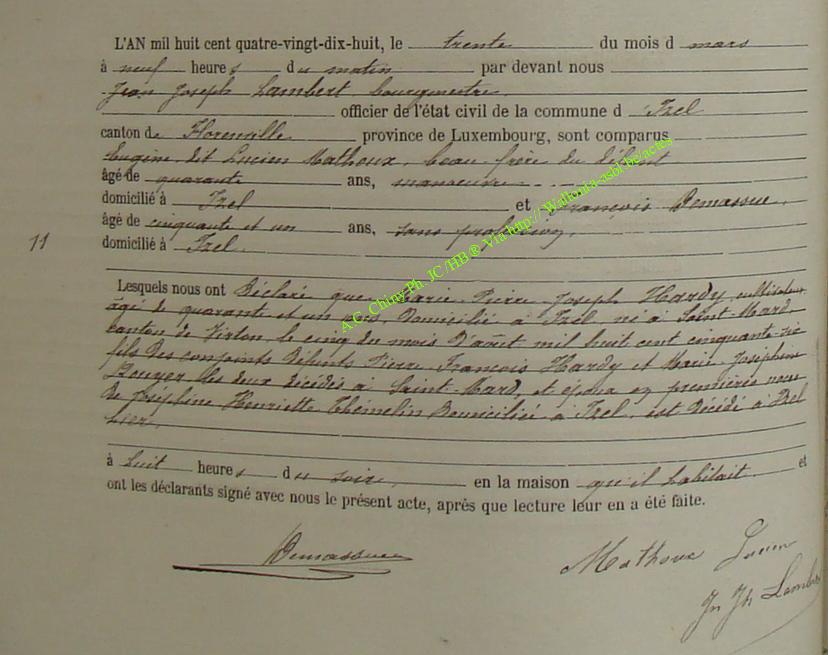 L'AN mil huit cent quatre-vingt-dix-huit, le trente du mois d mars
à neuf heures du matin par devant nous
Jean Joseph Lambert bourgmestre
officier de l'état civil de la commune d Izel
canton de Florenville province de Luxembourg, sont comparus
Eugène dit Lucien Mathoux, beau-frère du défunt
âgé de quarante ans, manoeuvre
domicilié à Izel et François Demassue,
âgé de cinquante et un ans, sans profession,
11 domicilié à Izel.
Lesquels nous ont Déclaré que Marie Pierre Joseph Hardy, cultivateur
âgé de quarante et un ans, Domicilié à Izel né à Saint-Mard
canton de Virton, le cinq du mois D'août mil huit cent cinquante-six
fils Des conjoints Défunts Pierre François Hardy et Marie Joséphine
les deux décédés à Saint-Mard, et époux en premières noces
De Joséphine Henriette Thémelin Domiciliée à Izel, est Décédé à Izel
hier,
à huit heures du soir, en la maison qu'il habitait et
ont les déclarants signé avec nous le présent acte, après que lecture leur en a été faite.
Demassue
Mathoux Lucien
Jn Jh Lambert
A.C. Chiny Ph. JC /HB ® Via http:// Wallonia-asbl-be/actes